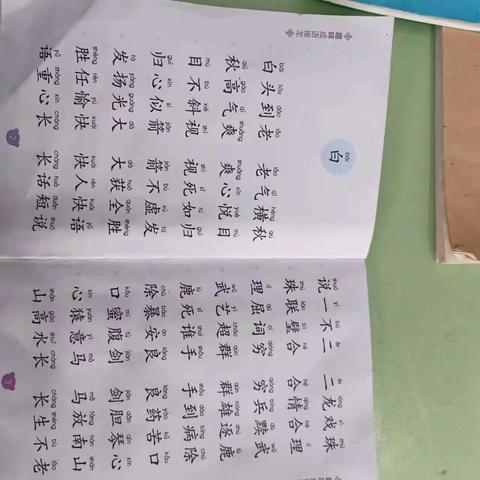 趣味成语接龙
bái
白
bái tóu dào lǎo lǎo qì héng qiū
白头到老 老气横秋
qiū gāo qì shuǎng shuǎng xīn yuè mù
秋高气爽 爽心悦目
mù bù xié shì shì sǐ rú guī
目不斜视 视死如归
guī xīn sì jiàn jiàn bù xū fā
归心似箭 箭不虚发
fā yáng guāng dà dà huò quán shèng
发扬光大 大获全胜
shèng rèn yú kuài kuài rén kuài yǔ
胜任愉快 快人快语
yǔ zhòng xīn cháng cháng huà duǎn shuō
语重心长 长话短说
2
shuō yī bù èr èr lóng xì zhū
说一不二 二龙戏珠
zhū lián bì hé hé qíng hé lǐ
珠联璧合 合情合理
lǐ qū cí qióng qióng bīng dú wǔ
理屈词穷 穷兵黩武
wǔ yì chāo qún qún xióng zhú lù
武艺超群 群雄逐鹿
lù sǐ shéi shǒu shǒu dào bìng chú
鹿死谁手 手到病除
chú bào ān liáng liáng yào kǔ kǒu
除暴安良 良药苦口
kǒu mì fù jiàn jiàn dǎn qín xīn
口蜜腹剑 剑胆琴心
xīn yuán yì mǎ mǎ fàng nán shān
心猿意马 马放南山
shān gāo shuǐ cháng cháng shēng bù lǎo
山高水长 长生不老
3